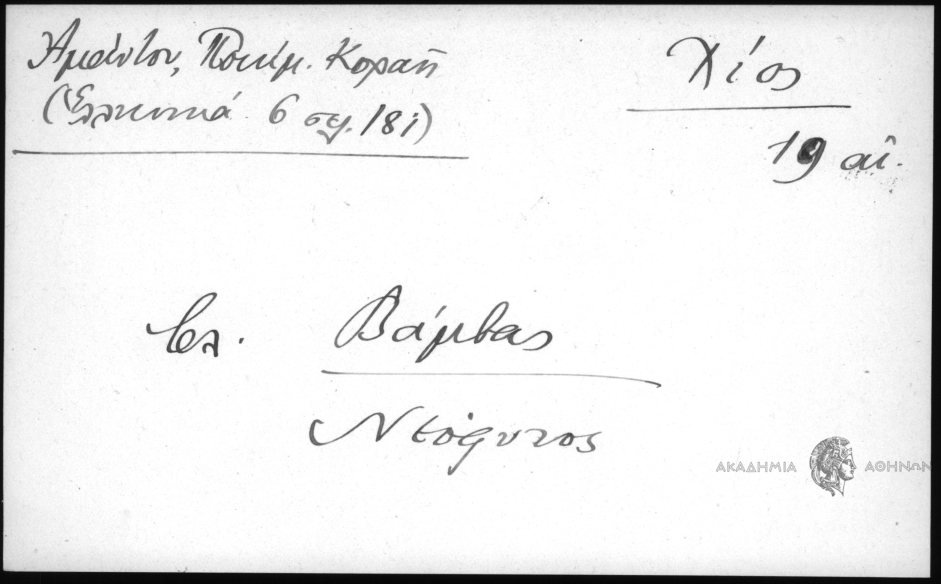 Ἀμάντου, Ποιήμ. Κοραῆ
(Ἑλληνικά 6 σελ. 181)
Χίος
19 αἰ.
ἐπ. Βάμβας
Νεόφυτος
ΑΚΑΔΗΜΙΑ ΑΘΗΝΩΝ